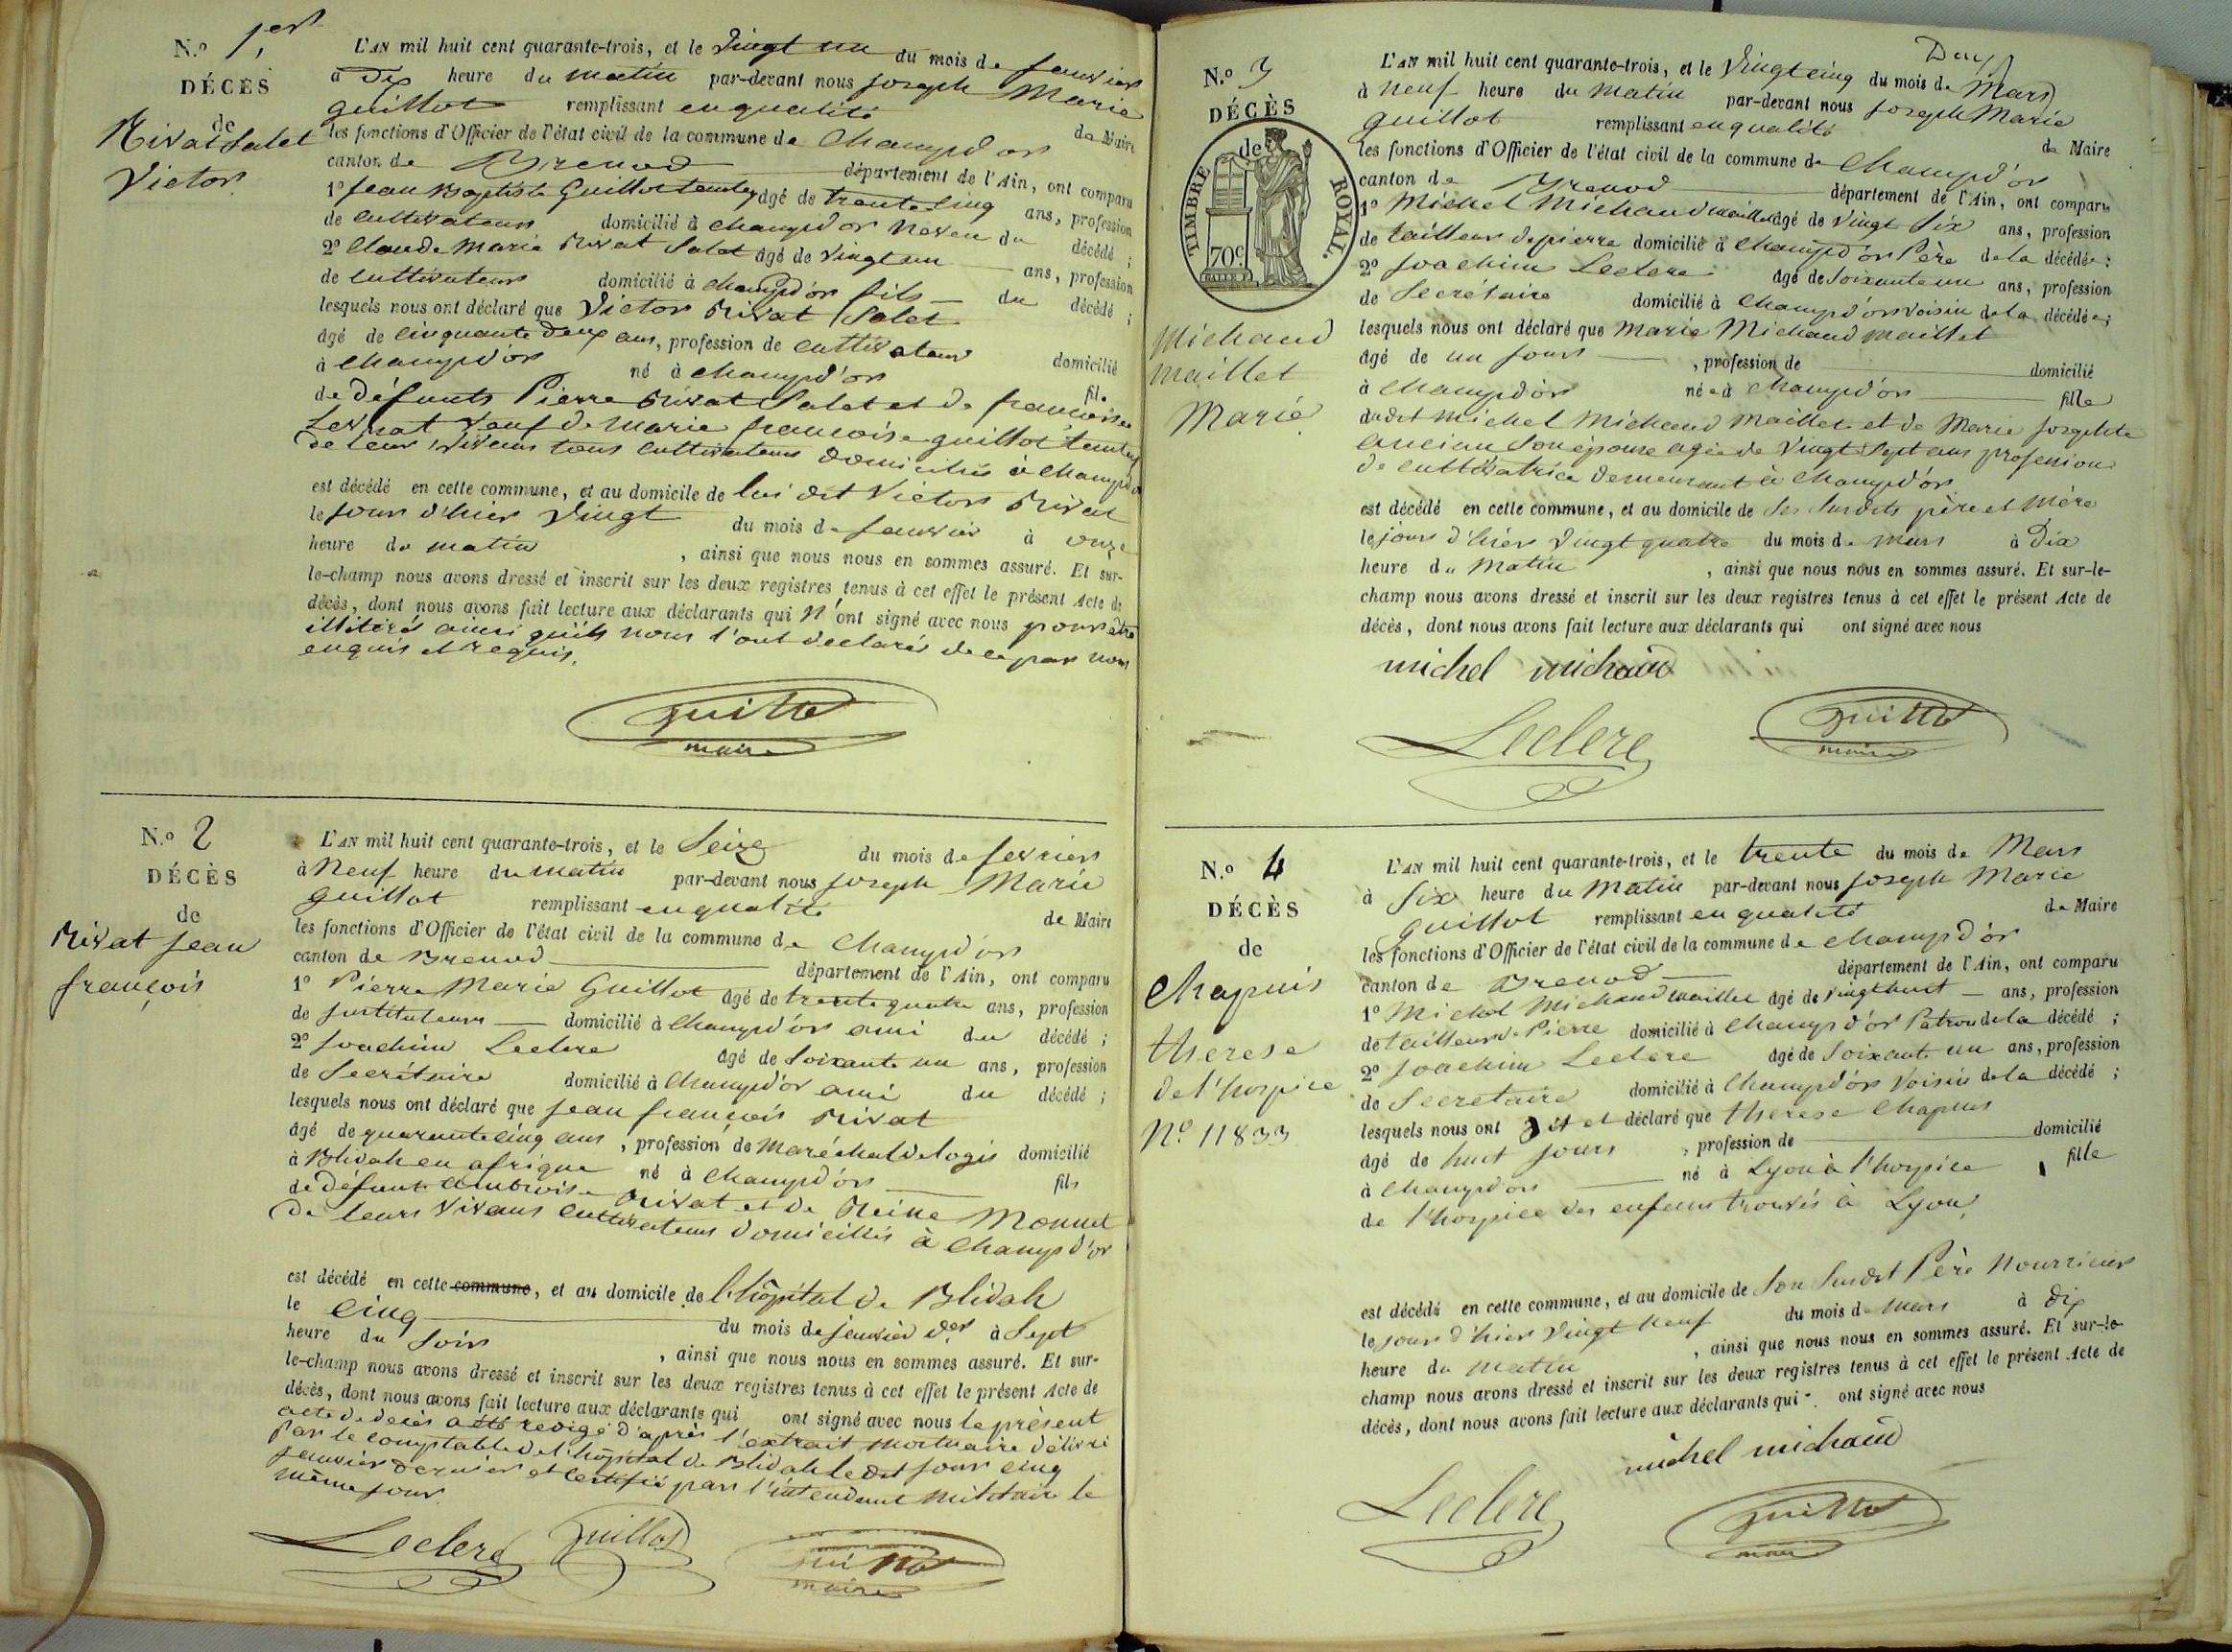 N.º 1er
DÉCÈS
de
Rivat Salet
Victor
L'AN mil huit cent quarante-trois, et le Vingt un du mois de janvier
à Dix heure du matin par-devant nous joseph Marie
guillot remplissant en qualité de Maire
les fonctions d'Officier de l'état civil de la commune de Champdor
canton de Brenod département de l'Ain, ont comparu
1º jean Baptiste Guillot âgé de trente cinq ans, profession
de cultivateur domicilié à champdor neveu du décédé ;
2º Claude Marie Rivat Salet âgé de vingt un ans, profession
de cultivateur domicilié à champd'or fils du décédé ;
lesquels nous ont déclaré que Victor Rivat Salet
âgé de cinquante deux ans, profession de cultivateur domicilié
à Champd'or né à Champd'or fils
de défunts Pierre Rivat Salet et de francoise
veuf de Marie francoise guillot
de leur vivans tous cultivateurs domiciliés à Champdor
est décédé en cette commune, et au domicile de lui dit Victor Rivat
le jour d'hier vingt du mois de janvier à onze
heure du matin , ainsi que nous nous en sommes assuré. Et sur-
le-champ nous avons dressé et inscrit sur les deux registres tenus à cet effet le présent Acte de
décès, dont nous avons fait lecture aux déclarants qui n'ont signé avec nous pour être
illitérés ainsi qu'ils nous l'ont déclarés de ce par nous
enquis et requis.
Guillot
maire
N.º 2
DÉCÈS
de
Rivat jean
françois
L'AN mil huit cent quarante-trois, et le Seize du mois de fevrier
à Neuf heure du matin par-devant nous joseph Marie
guillot remplissant en qualité de Maire
les fonctions d'Officier de l'état civil de la commune de Champd'or
canton de Brenod département de l'Ain, ont comparu
1º Pierre Marie Guillot âgé de trente quatre ans, profession
de instituteur domicilié à Champd'or ami du décédé ;
2º Joachim Leclere âgé de soixante un ans, profession
de Secrétaire domicilié à Champd'or ami du décédé ;
lesquels nous ont déclaré que jean françois Rivat
âgé de quarante cinq ans, profession de maréchal de logis domicilié
à Blidah en afrique né à Champd'or fils
de défunt ambroise Rivat et de Reine Monnet
de leurs vivans cultivateurs domiciliés à Champd'or
est décédé en cette commune, et au domicile de l'hôpital de Blidah
le cinq du mois de janvier der à Sept
heure du Soir , ainsi que nous nous en sommes assuré. Et sur-
le-champ nous avons dressé et inscrit sur les deux registres tenus à cet effet le présent Acte de
décès, dont nous avons fait lecture aux déclarants qui ont signé avec nous le présent
acte de décès a été rédigé d'après l'extrait mortuaire délivré
par le comptable de l'hôpital de Blidah ledit jour cinq
janvier dernier et certifié par l'intendant militaire le
même jour.
Leclere Guillot Guillot
maire
N.º 3
DÉCÈS
de
TIMBRE ROYAL.
70c.
Michaud
maillet
Marie
Deux
L'AN mil huit cent quarante-trois, et le Vingt cinq du mois de Mars
à neuf heure du matin par-devant nous joseph Marie
guillot remplissant en qualité de Maire
les fonctions d'Officier de l'état civil de la commune de Champd'or
canton de Brenod département de l'Ain, ont comparu
1º Michel Michaud maillet âgé de vingt six ans, profession
de tailleur de pierre domicilié à Champd'or Père de la décédée ;
2º Joachim Leclere âgé de soixante un ans, profession
de Secrétaire domicilié à Champd'or voisin de la décédée ;
lesquels nous ont déclaré que Marie Michaud maillet
âgé de un jour , profession de domicilié
à Champd'or née à Champd'or fille
dudit Michel Michaud Maillet et de Marie josephte
ancian son épouse agée de vingt sept ans profession
de cultivatrice demeurant à Champd'or
est décédé en cette commune, et au domicile de ses susdits père et mère
le jour d'hier vingt quatre du mois de mars à dix
heure du Matin , ainsi que nous nous en sommes assuré. Et sur-le-
champ nous avons dressé et inscrit sur les deux registres tenus à cet effet le présent Acte de
décès, dont nous avons fait lecture aux déclarants qui ont signé avec nous
michel michaud
Leclere Guillot
maire
N.º 4
DÉCÈS
de
Chapuis
therese
de l'hospice
Nº 11833
L'AN mil huit cent quarante-trois, et le trente du mois de Mars
à Six heure du Matin par-devant nous joseph Marie
guillot remplissant en qualité de Maire
les fonctions d'Officier de l'état civil de la commune de Champd'or
canton de Brenod département de l'Ain, ont comparu
1º Michel Michaud maillet âgé de vingt huit ans, profession
de tailleur de Pierre domicilié à Champd'or Patron de la décédé ;
2º Joachim Leclere âgé de soixante un ans, profession
de Secretaire domicilié à Champd'or voisin de la décédé ;
lesquels nous ont dit et déclaré que therese Chapuis
âgé de huit jours , profession de domicilié
à Champdor né à Lyon à l'hospice fille
de l'hospice des enfans trouvés à Lyon,
est décédé en cette commune, et au domicile de son susdit Père nourricier
le jour d'hier vingt neuf du mois de mars à dix
heure du matin , ainsi que nous nous en sommes assuré. Et sur-le-
champ nous avons dressé et inscrit sur les deux registres tenus à cet effet le présent Acte de
décès, dont nous avons fait lecture aux déclarants qui ont signé avec nous
michel michaud
Leclere Guillot
maire